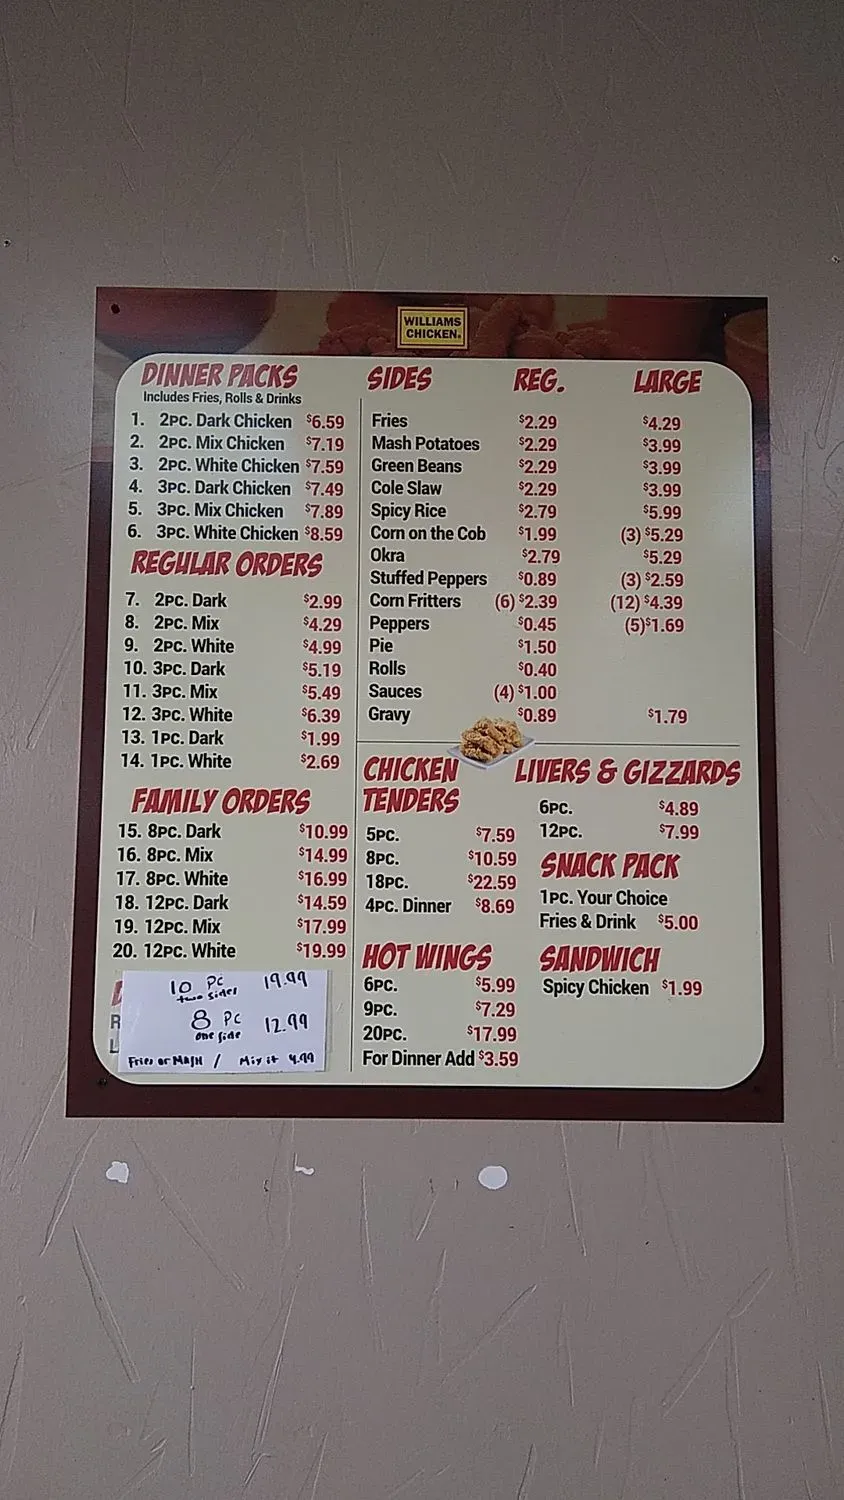 WILLIAMS
CHICKEN.
DINNER PACKS
Includes Fries, Rolls & Drinks
1. 2PC. Dark Chicken $6.59
2. 2PC. Mix Chicken $7.19
3. 2PC. White Chicken $7.59
4. 3PC. Dark Chicken $7.49
5. 3PC. Mix Chicken $7.89
6. 3PC. White Chicken $8.59
REGULAR ORDERS
7. 2PC. Dark $2.99
8. 2PC. Mix $4.29
9. 2PC. White $4.99
10. 3PC. Dark $5.19
11. 3PC. Mix $5.49
12. 3PC. White $6.39
13. 1PC. Dark $1.99
14. 1PC. White $2.69
FAMILY ORDERS
15. 8PC. Dark $10.99
16. 8PC. Mix $14.99
17. 8PC. White $16.99
18. 12PC. Dark $14.59
19. 12PC. Mix $17.99
20. 12PC. White $19.99
10 PC 19.99
two sides
8 PC 12.99
one side
Fries or MASH / Mix it 4.99
SIDES REG. LARGE
Fries $2.29 $4.29
Mash Potatoes $2.29 $3.99
Green Beans $2.29 $3.99
Cole Slaw $2.29 $3.99
Spicy Rice $2.79 $5.99
Corn on the Cob $1.99 (3) $5.29
Okra $2.79 $5.29
Stuffed Peppers $0.89 (3) $2.59
Corn Fritters (6) $2.39 (12) $4.39
Peppers $0.45 (5)$1.69
Pie $1.50
Rolls $0.40
Sauces (4) $1.00
Gravy $0.89 $1.79
CHICKEN
TENDERS
5PC. $7.59
8PC. $10.59
18PC. $22.59
4PC. Dinner $8.69
HOT WINGS
6PC. $5.99
9PC. $7.29
20PC. $17.99
For Dinner Add $3.59
LIVERS & GIZZARDS
6PC. $4.89
12PC. $7.99
SNACK PACK
1PC. Your Choice
Fries & Drink $5.00
SANDWICH
Spicy Chicken $1.99